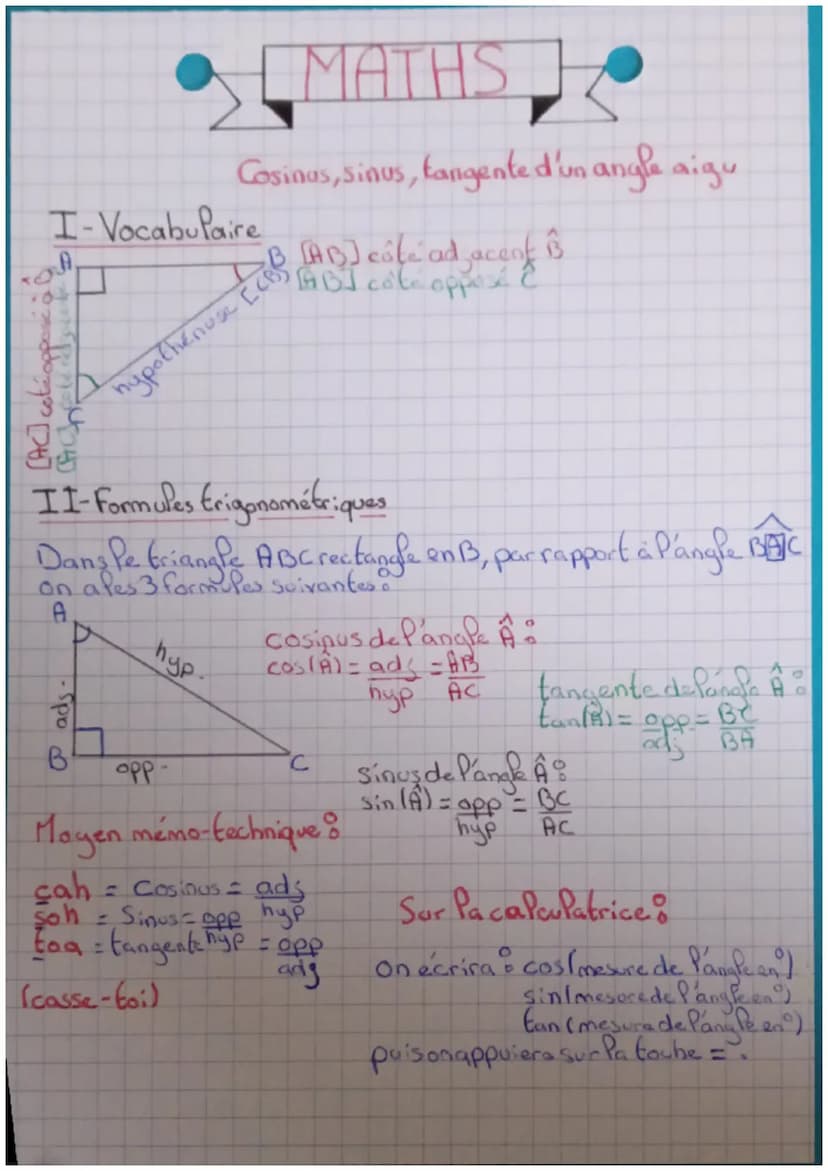 MATHS
Cosinus, sinus, tangente d'un angle aigu
I - Vocabulaire
A
B
[AB] côté adjacent B̂
[AB] côté opposé Ĉ
hypothénuse [CB]
[AC] côté opposé à
[AC]
C
II - Formules trigonométriques
Dans le triangle ABC rectangle en B, par rapport à l'angle BAC
on a les 3 formules suivantes :
A
hyp.
adj.
B
opp.
C
cosinus de l'angle Â :
cos(Â) = adj/hyp = AB/AC
tangente de l'angle Â :
tan(Â) = opp/adj = BC/BA
sinus de l'angle Â :
sin(Â) = opp/hyp = BC/AC
Moyen mémo-technique :
cah = Cosinus = adj/hyp
soh = Sinus = opp/hyp
toa = tangente = opp/adj
(casse-toi)
Sur la calculatrice :
on écrira : cos(mesure de l'angle en °)
sin(mesure de l'angle en °)
tan(mesure de l'angle en °)
puis on appuiera sur la touche = .